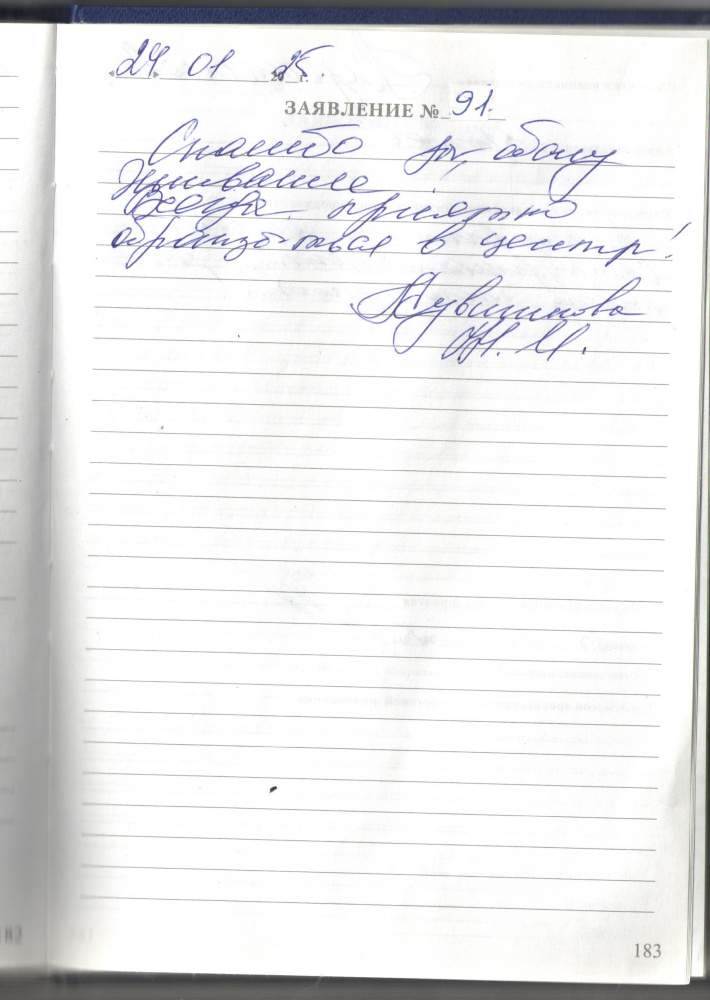 «24» 01 2025 г.
ЗАЯВЛЕНИЕ № 91.
Спасибо за обслу
живание
Всегда приятно
обращаться в центр!
Кувшинова
Н. И.
183